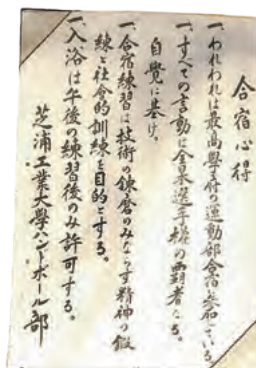 合宿心得
一、われわれは最高學府の運動部合宿に参加している
一、すべての言動は全日本選手権の覇者たる
自覺に基け。
一、合宿練習は技術の錬磨のみならず精神の鍛
練と社會的訓練を目的とする。
一、入浴は午後の練習後のみ許可する。
芝浦工業大學ハンドボール部